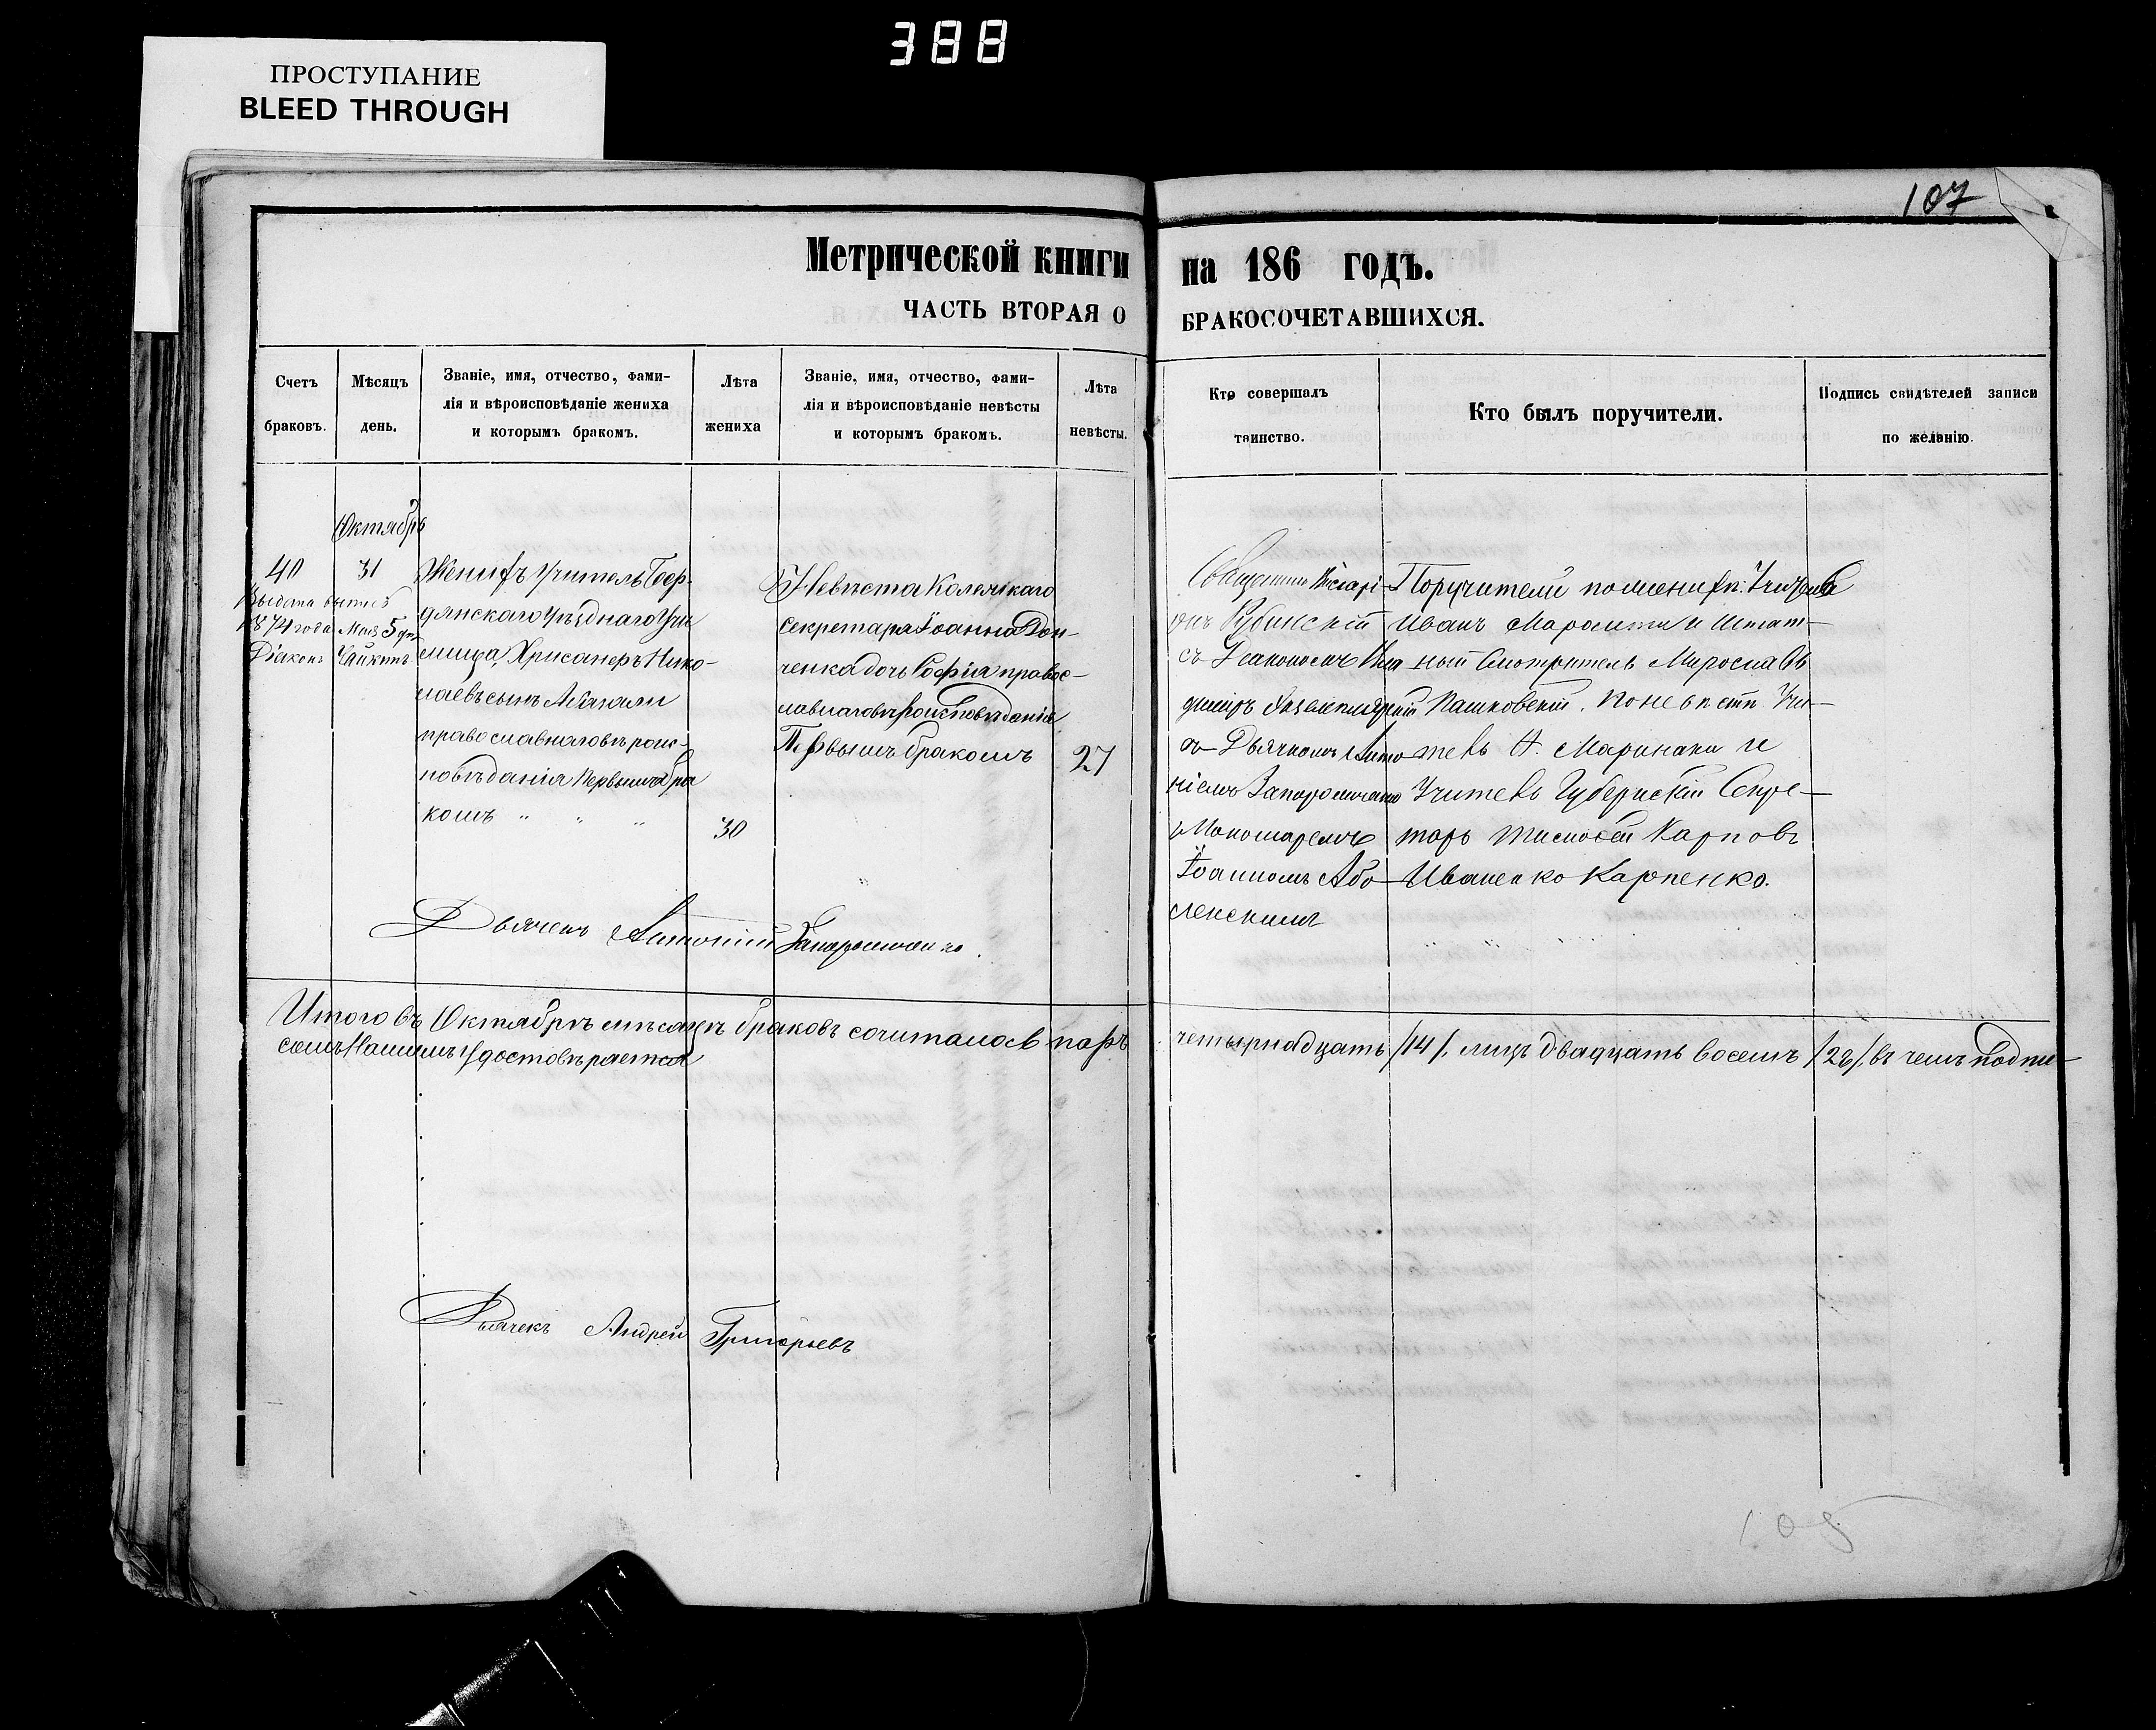 388
ПРОСТУПАНИЕ
BLEED THROUGH
107
Метрической книги на 186 годъ.
ЧАСТЬ ВТОРАЯ О БРАКОСОЧЕТАВШИХСЯ.
Счетъ браковъ.
Мѣсяцъ день.
Званіе, имя, отчество, фами-
лія и вѣроисповѣданіе жениха
и которымъ бракомъ.
Лѣта жениха
Званіе, имя, отчество, фами-
лія и вѣроисповѣданіе невѣсты
и которымъ бракомъ.
Лѣта невѣсты.
Кто совершалъ
таинство.
Кто былъ поручители.
Подпись свидѣтелей записи
по желанію.
Октябрь
40
31
Выдана выпись
1874 года Мая 5 дня
Діаконъ Чайкинъ
Женихъ Учитель Бер-
дянскаго Уѣзднаго Учи
лища, Хрисанфъ Нико-
лаевъ сынъ
православнаго вѣроис-
повѣданія первымъ бра
комъ " " "
30
Невѣста Колежскаго
Секретаря Іоанна Дон-
ченка дочь Софія правос-
лавнаго вѣроисповѣданія
Первымъ бракомъ
27
Священникъ Виссарі-
онъ Рубинскій
съ Діакономъ Вла
диміръ
съ Дьячкомъ Анто
ніемъ Запорошченко
Пономаремъ
Іоанномъ Або
ленскимъ
Поручители по женихѣ: Учитель
Иванъ и Штат-
ный Смотритель Мирославъ
Пашковскій. По невѣстѣ Учи-
тель Н. Маринаки и
Учитель Губернскій Секре-
тарь Карповъ
Иваненко Карпенко.
Дьячекъ Антоній Запорошченко.
Итого въ Октябрѣ мѣсяцѣ браковъ сочиталось паръ четырнадцать /14/, лицъ двадцать восемь /28/, въ чемъ подпи-
сомъ Нашимъ Удостовѣряется
Дьячекъ Андрей Григорьевъ
108